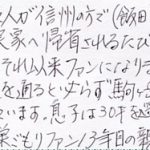 人が信州の方で(飯田
実家へ帰省されるたび
それ以来ファンになりま
を通ると必らず駒ヶ
います。息子は30才を
巣ごもりファン13年目の親